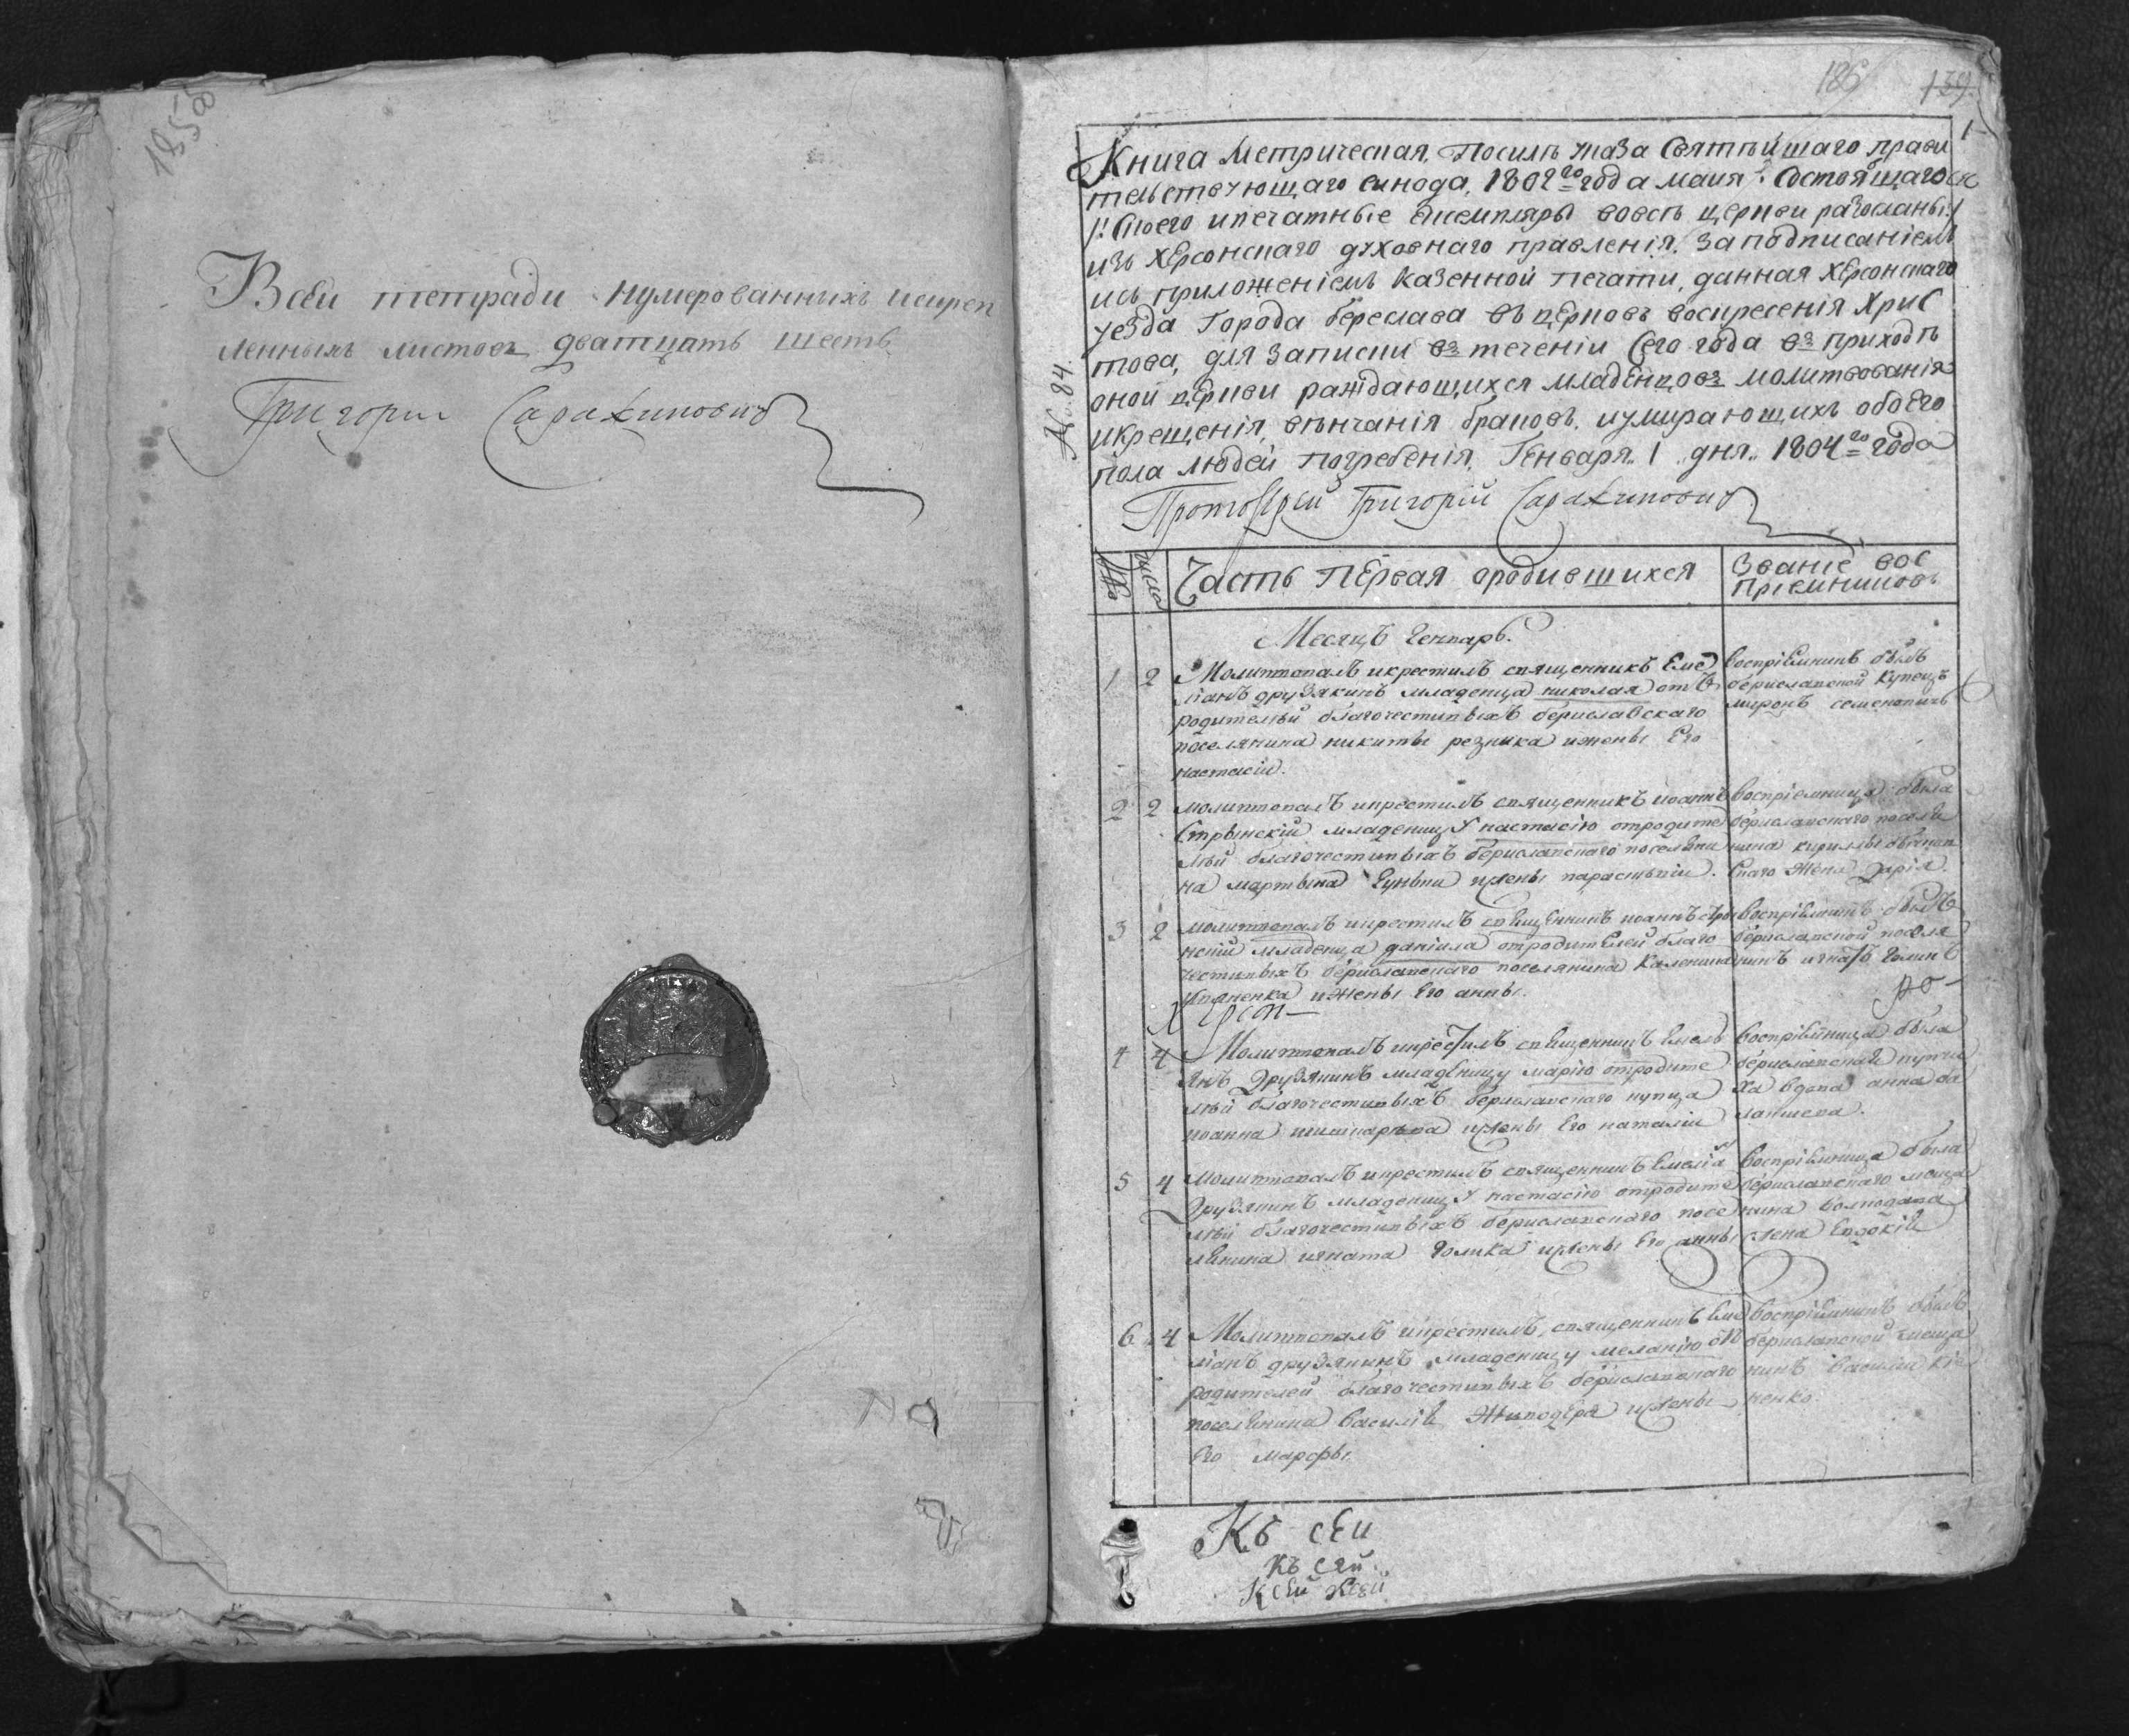 185 об
Всей тетради нумерованныхъ искреп
ленныхъ листовъ дватцать шесть
Григорий Сарахинович
186 139
1
№. 84.
Книга Метрическая, посилѣ указа Святѣйшаго прави
тельствующаго синода, 1802го года маия состоявшагося
/: скоего ипечатные екземпляры вовсѣ церкви разосланы :/
изъ Херсонскаго духовнаго правленія, заподписаніемъ
исъ приложеніемъ казенной печати, данная херсонскаго
уезда города береслава въ церковь воскресенія Хрис
това, для записки въ теченіи сего года въ приходѣ
оной церкви раждающихся младенцовъ молитвованія
икрещенія, вѣнчанія браковъ, иумирающихъ обоего
пола людей погребенія, Генваря 1 дня 1804го года
Протоіерей Григорій Сарахинович
№ число Часть первая ородившихся Званіе вос
пріемниковъ
Месяцъ генварь.
1 2 Молитвовалъ икрестилъ священникъ Емел
ианъ друзякинъ младенца николая отъ
родителей благочестивыхъ бериславскаго
поселянина никиты резника ижены Его
настасіи.
воспріемникъ былъ
бериславской купецъ
миронъ семеновичъ
2 2 молитвовалъ икрестилъ священникъ иоаннъ
Стрынскій младеницу настасію отродите
лей благочестивыхъ бериславскаго поселяни
на мартына ижены параскѣвіи.
воспріемница была
бериславскаго поселя
нина кирилы
скаго жена дарія.
3 2 молитвовалъ икрестилъ священникъ иоаннъ стры
нскій младенца даніила отродителей благо
честивыхъ бериславскаго поселянина
ижены его анны.
воспріемникъ былъ
бериславской поселя
нинъ игнатъ голикъ
Херсон
ро
4 4 Молитвовалъ икрестилъ священникъ Емель
янъ Друзякинъ младеницу марію отродите
лей благочестивыхъ бериславскаго купца
иоанна ижены Его наталіи
воспріемница была
бериславская купчи
ха вдова анна ба
лашева.
5 4 Молитвовалъ икрестилъ священникъ Емелія
Друзякинъ младеницу настасію отродите
лей благочестивыхъ бериславскаго посе
лянина игната голика ижены Его анны
воспріемница была
бериславскаго меща
нина
жена Евдокія
6 4 Молитвовалъ икрестилъ, священникъ Еме
ліанъ друзякинъ младеницу меланію от
родителей благочестивыхъ бериславскаго
поселянина василія Живодера ижены
его марфы
воспріемникъ былъ
бериславской меща
нинъ василий
ненко.
Къ сеи
къ сей
К сей ксей